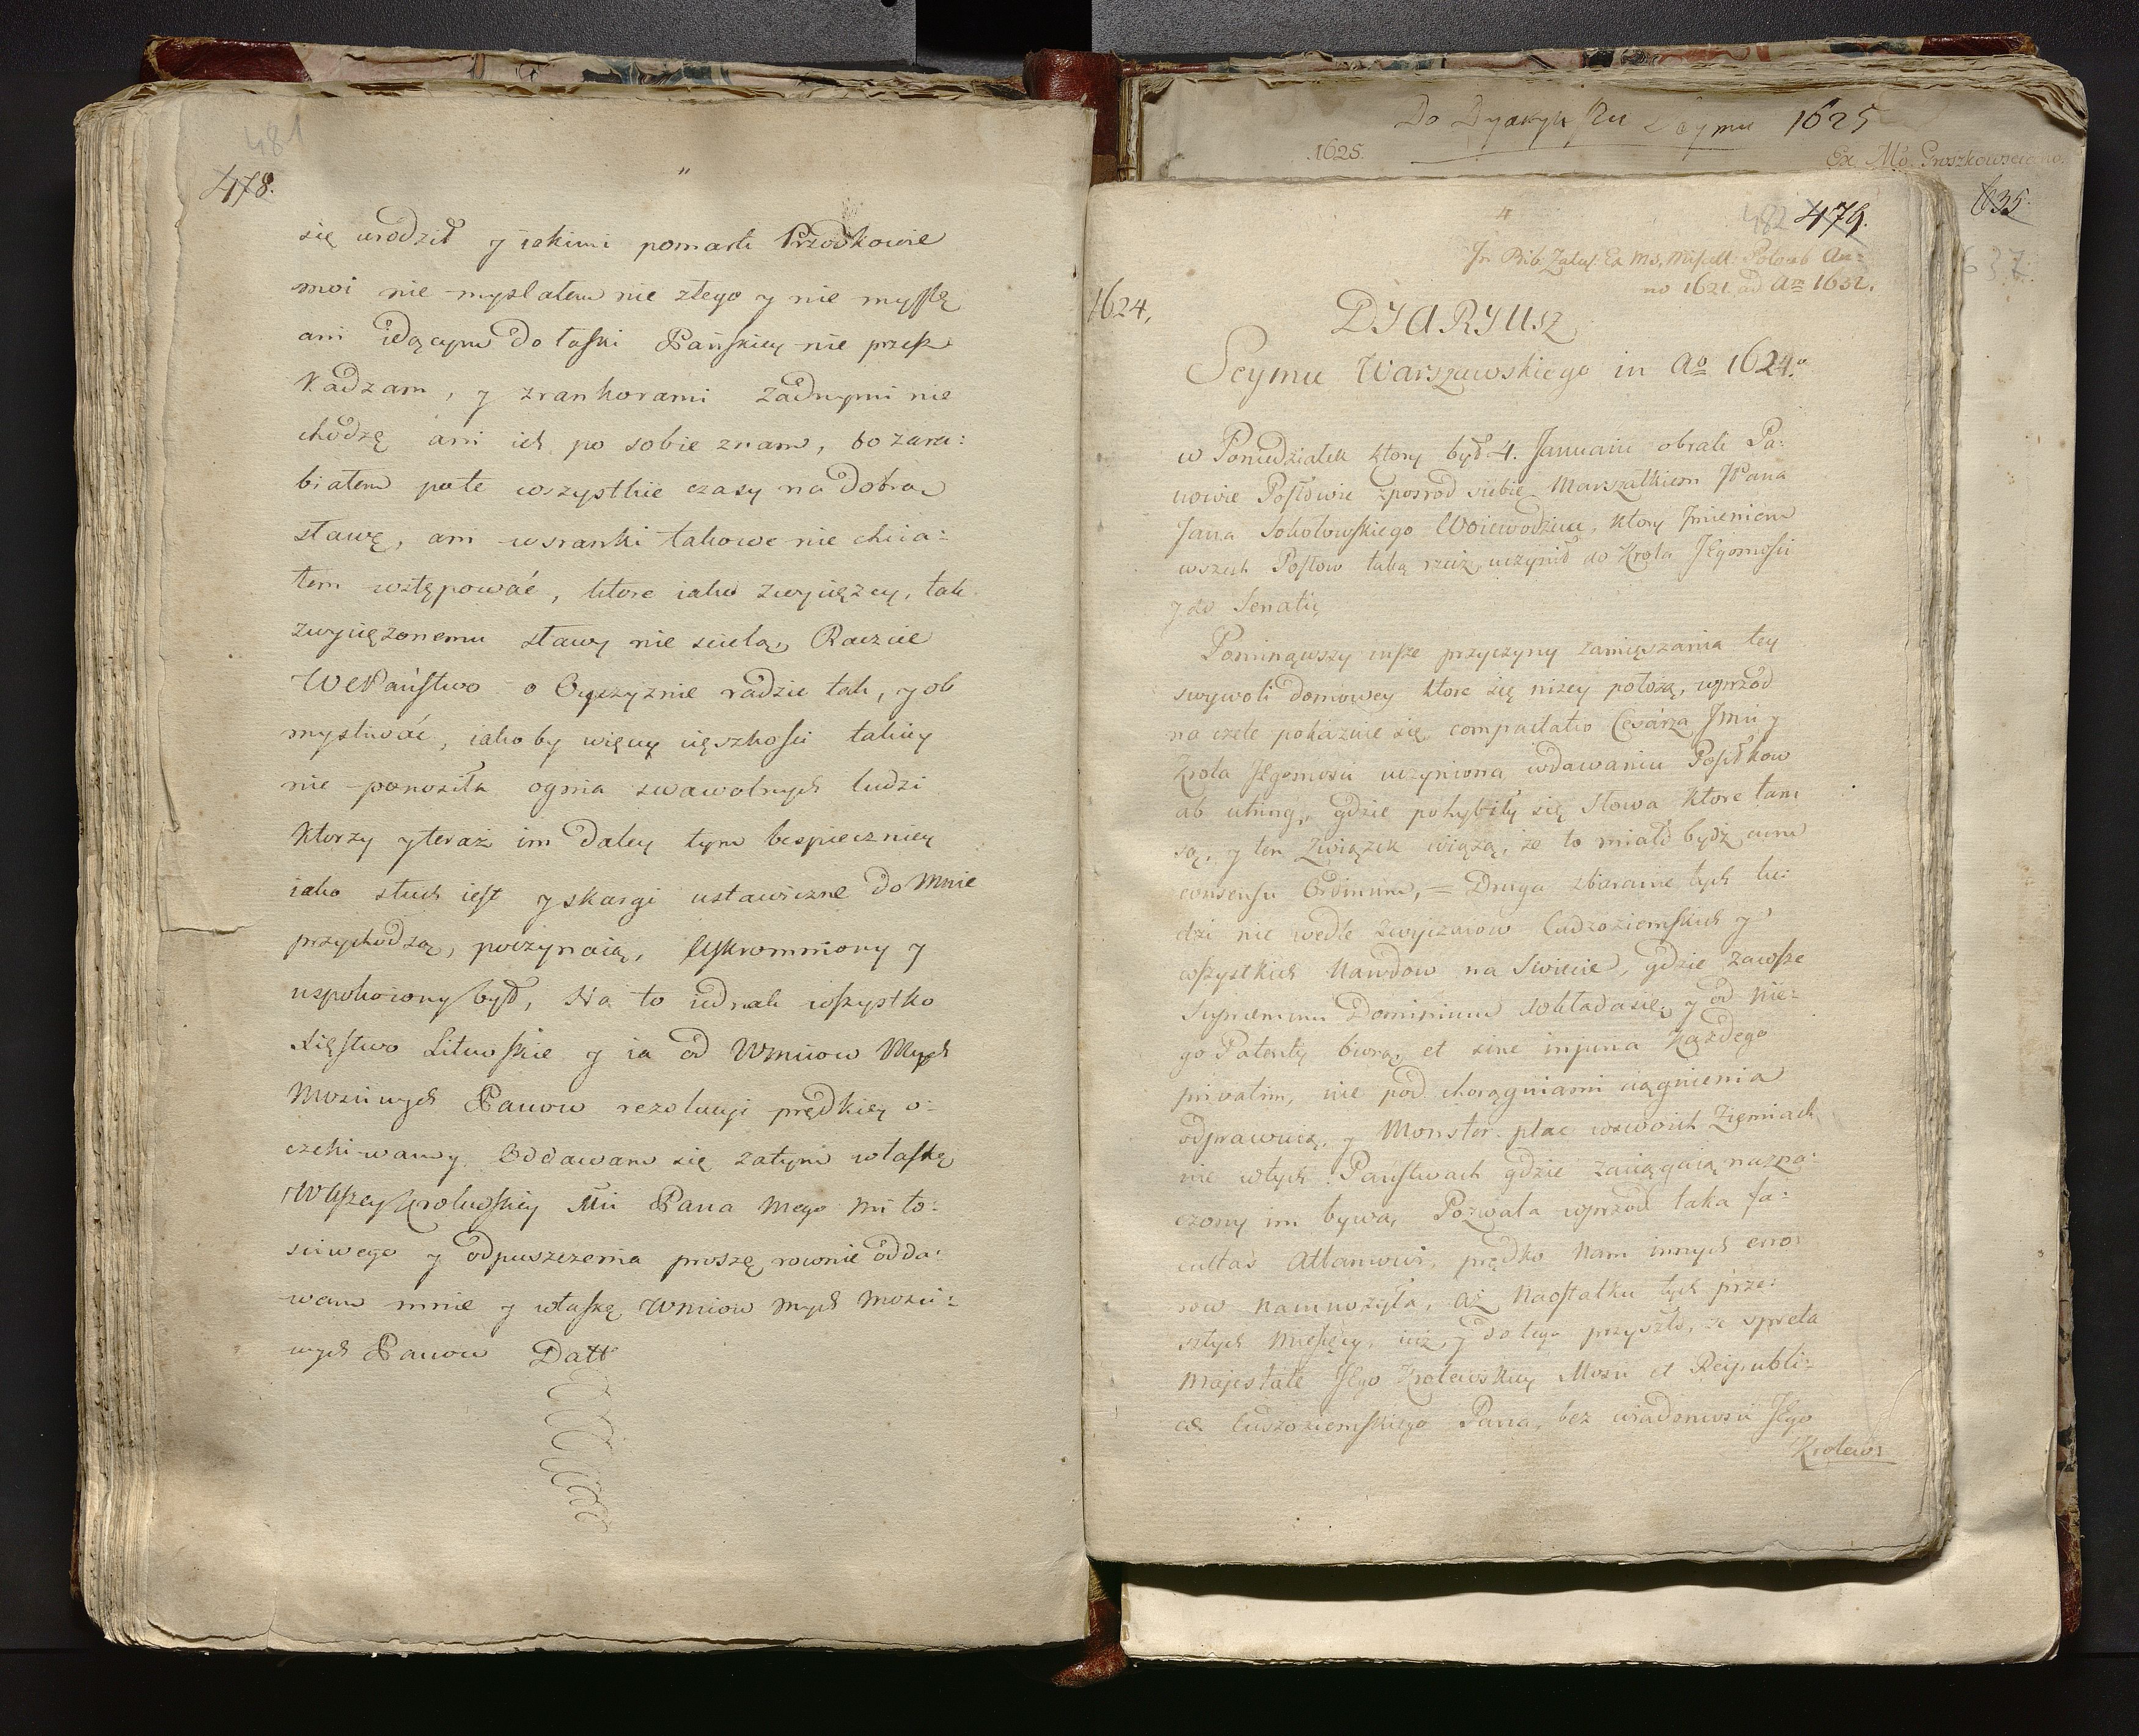 481
478.
się urodził y iakimi pomarli Przodkowie
moi nie myslałem nic złego y nie myſſlę
ani idącym do łaſki Pańſkiey nie przeſz
kadzam, y zrankorami żadnymi nie
chodzę ani ich po sobie znam, bo zara:
białem przte wszystkie czasy na dobrą
sławę, ani wsranki takowe nie chcia:
łem wstępować, ktore iako zwyciężcy, tak
zwyciężonemu sławy nie
WMPańſtwo o Oyczyznie radzić tak, y ob
myslivać, iako by więcey ciężkoſci takiey
nie ponosiła ognia swawolnych ludzi
Ktorzy y teraz im daley tym bespieczniey
iako słuch ieſt y skargi ustawiczne do mnie
przychodzą, poczynaią, Uſkromniony y
uspokoiony był, Na to iednak wſzystko
Xięſtwo Litewſkie y ia od Wmciow Mych
Mosciwych Panow rezolucyi prędkiey o:
czekiwamy. Oddawam się zatym właſkę
WKſzey Krolewſkiey Mci Pana mego mi ło:
sciwego y odpuszczenia proszę, rownie odda:
wam mnie y właſkę Wmciow mych mosci:
wych Panow Datt

Do Dyaryuſzu Seymu 1625
1625.
Ex. Mo. Groszkowsciano.
635.
637.
482 479.
In Bib. Zaluſ. Ex Ms. Miſcell. Polon ab An:
no 1621. ad Am 1632.
1624.
DYARYUSZ
Seymu Warszawskiego in Ao 1624.o
w Poniedziałek ktory był 4. Januarii obrali Pa:
nowie Poſłowie zposrod siebie Marszałkiem JPana
Jana Sokołowſkiego Woiewodzica, ktory Imieniem
wszech Poſłow taką rzecz uczynił do Krola JEgomoſci
y do Senatu,
Pominąwszy insze przyczyny zamięszania tey
swywoli domowey ktore się niżey położą, wprzod
na czele pokazuie się compactatio Cesarza Jmci y
Krola JEgomosci uczyniona wdawaniu Poſiłkow
ab utrinq, gdzie pohybiły się słowa ktore tam
są, y ten Związek wiążą, że to miało bydź cum
consensu Ordinum, = Druga zbieranie tych lu:
dzi nie wedle zwyczaiow Cudzoziemſkich y
wſzystkich Narodow na swiecie, gdzie zawſze
supremum Dominium dokłada się, y od nie:
go Patenty biorą, et sine injuria każdego
privatim, nie pod chorągwiami ciągnienia
odprawuią, y Monster plac wswoich Ziemiach
nie wtych Pańſtwach gdzie zaciągaią nazna:
czony im bywa, Pozwala wprzod taka fa:
cultas Altanowi, prędko nam innych erro:
row namnożyła, aż naostatku tych prze:
szłych Mieſięcy, iuż y do tego przyszło, że spreta
Majestate JEgo Krolewskiey Mosci et Reipubli:
cæ Cudzoziemſkiego Pana, bez wiadomosci JEgo
Krolews: